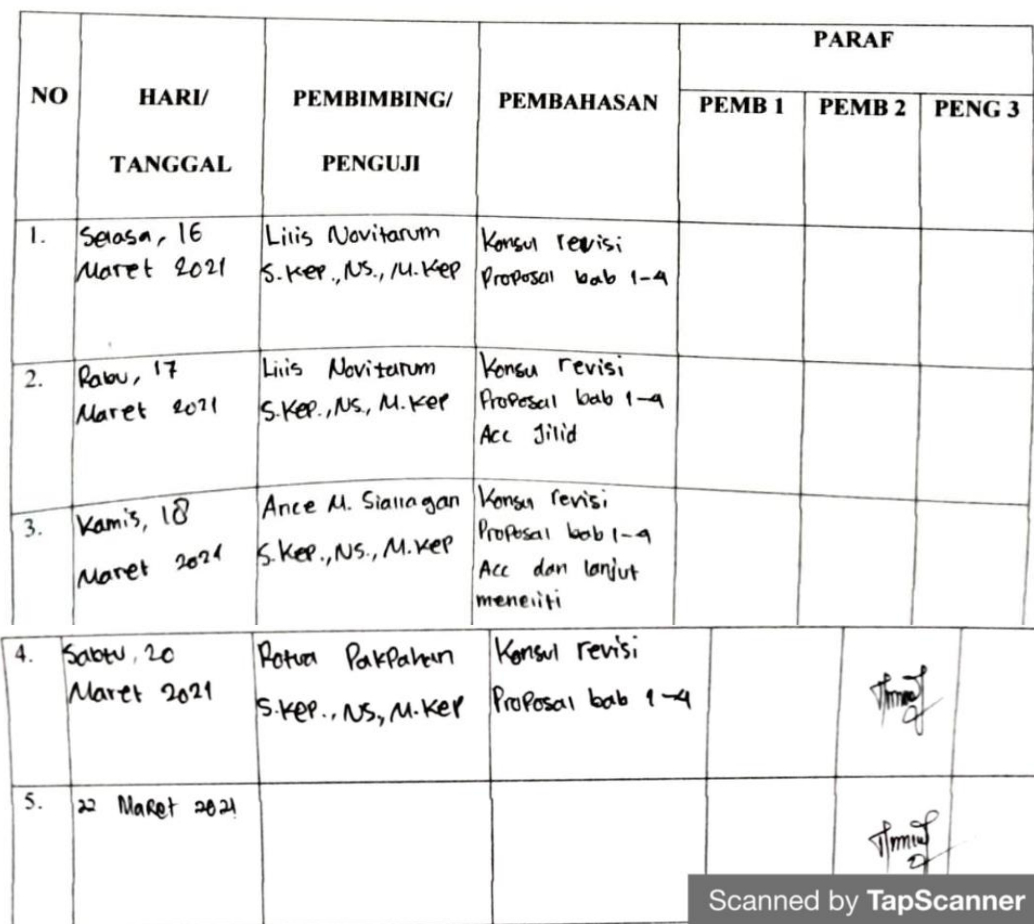 PARAF
NO HARI/ TANGGAL PEMBIMBING/ PENGUJI PEMBAHASAN PEMB 1 PEMB 2 PENG 3
1. Selasa, 16 Maret 2021
Lilis Novitarum
S.Kep., NS., M.Kep
Konsul revisi
Proposal bab 1-4
2. Rabu, 17
Maret 2021
Lilis Novitarum
S.Kep., NS., M.Kep
Konsu revisi
Proposal bab 1-4
Acc Jilid
3. Kamis, 18
Maret 2021
Ance M. Siallagan
S.Kep., NS., M.Kep
Konsul revisi
Proposal bab 1-4
Acc dan lanjut
meneliti
4. Sabtu, 20
Maret 2021
Rotua Pakpahan
S.Kep., NS., M.Kep
Konsul revisi
Proposal bab 1-4
5. 22 Maret 2021
Scanned by TapScanner